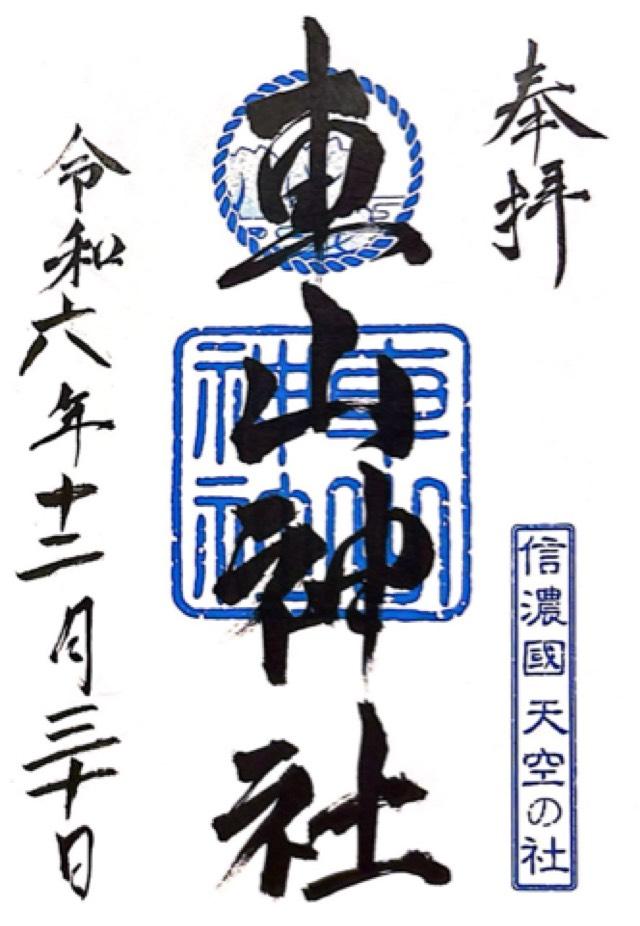 奉拝
信濃國 天空の社
車山神社
令和六年十二月三十日